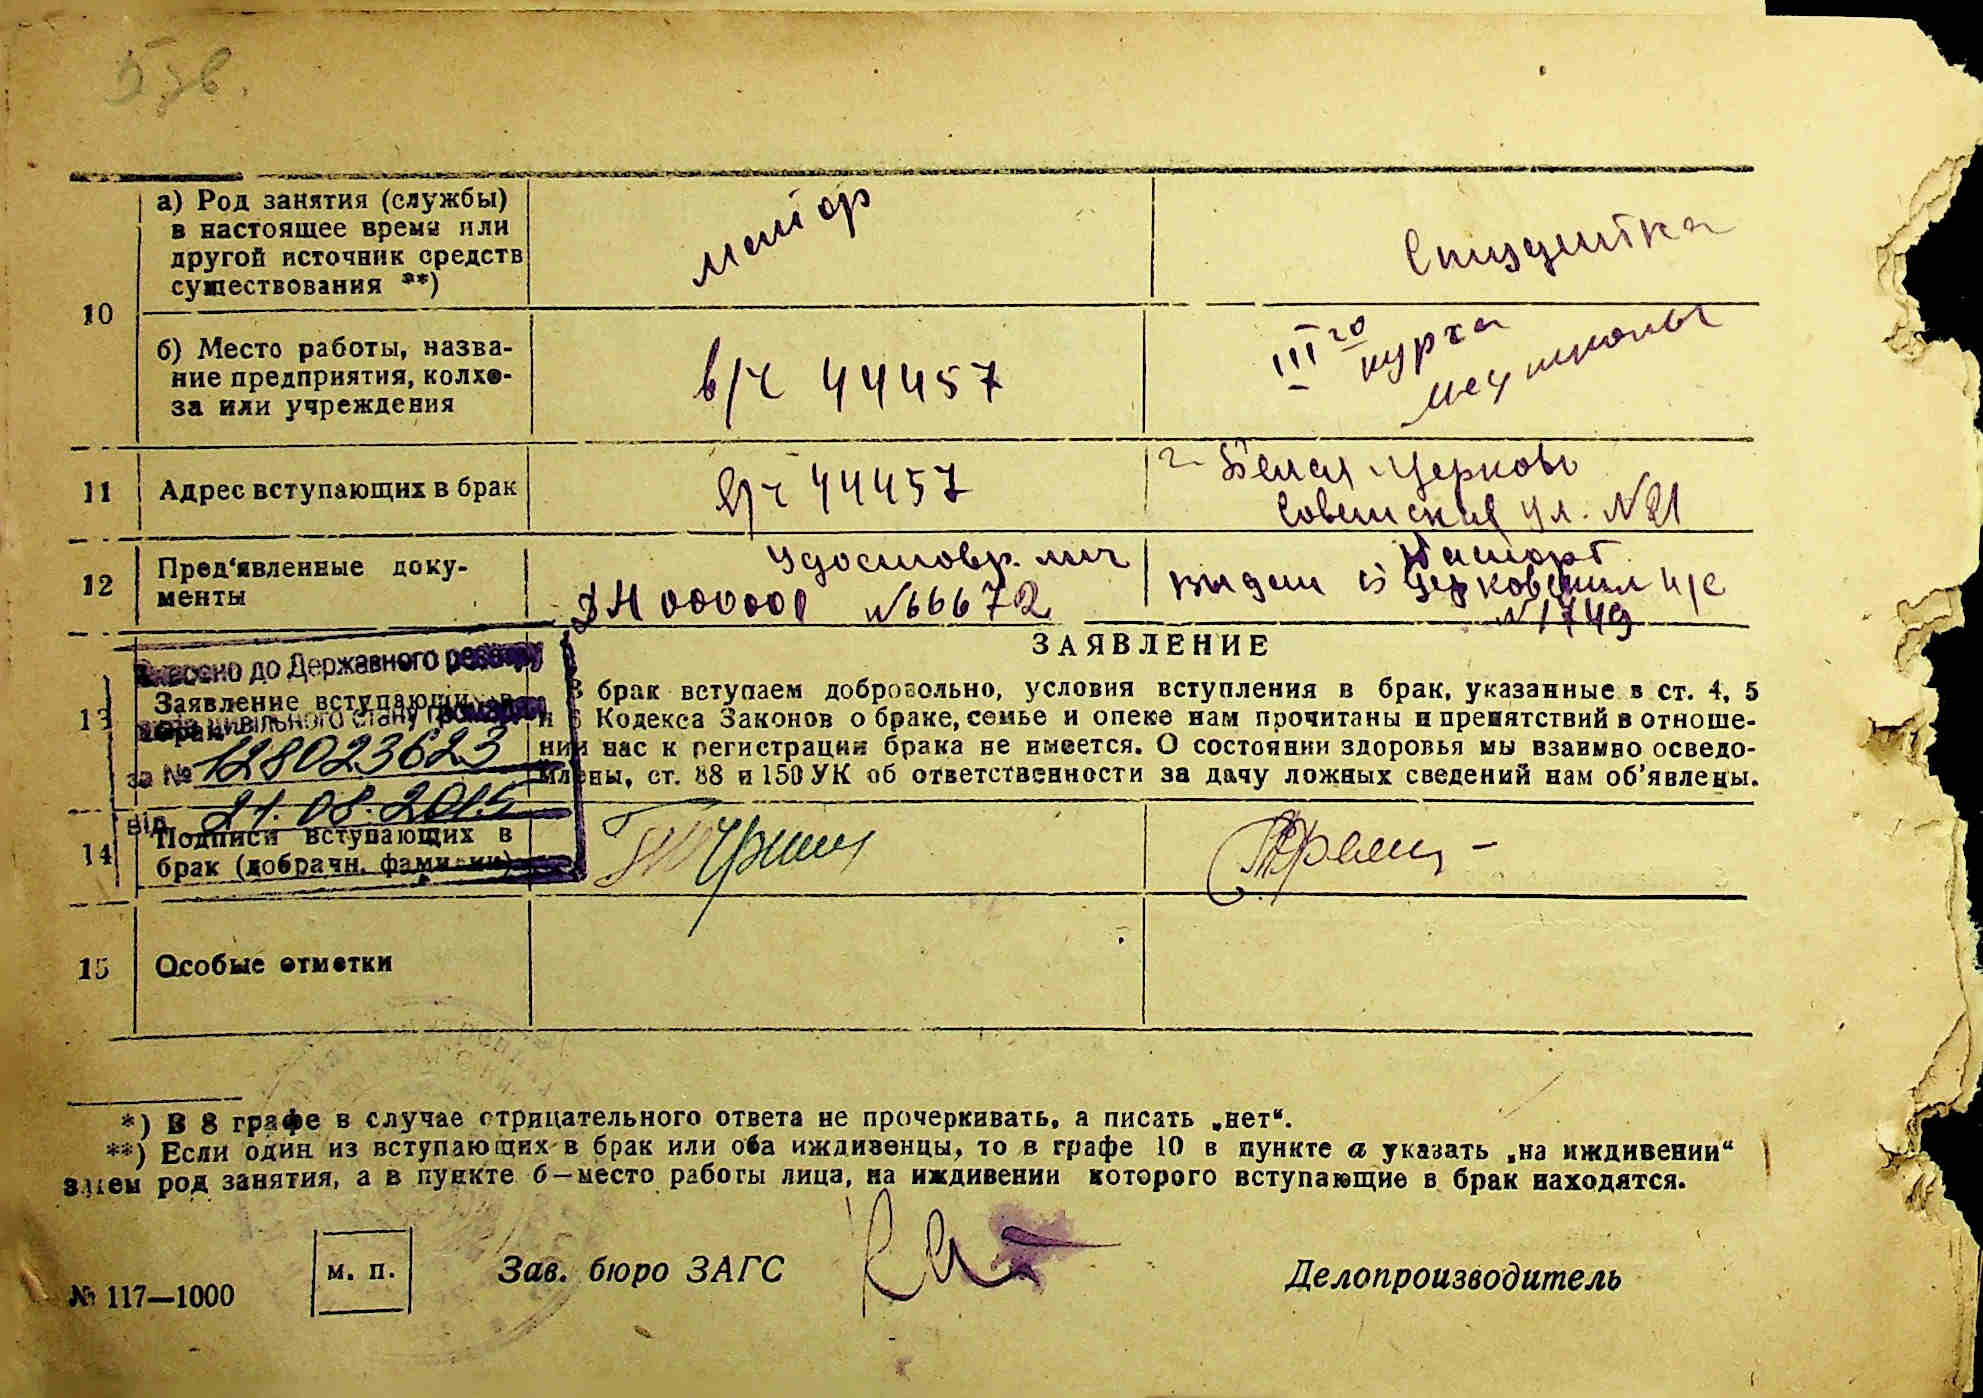 а) Род занятия (службы)
в настоящее время или
другой источник средств
существования **)
майор
Студентка
10
б) Место работы, назва-
ние предприятия, колхо-
за или учреждения
в/ч 44457
III го курса
медшколы
11
Адрес вступающих в брак
в/ч 44457
г. Белая Церковь
Советская ул. №21
12
Пред‘явленные доку-
менты
Удостовер. лич
ДН 000001 №66672
Паспорт
выдан Б Церковским
№1749
ЗАЯВЛЕНИЕ
Внесено до Державного реєстру
актів цивільного стану громадян
за № 128023623
від 21.08.2015
13
Заявление вступающих в
брак
В брак вступаем добровольно, условия вступления в брак, указанные в ст. 4, 5
и 6 Кодекса Законов о браке, семье и опеке нам прочитаны и препятствий в отноше-
нии нас к регистрации брака не имеется. О состоянии здоровья мы взаимно осведо-
млены, ст. 88 и 150 УК об ответственности за дачу ложных сведений нам об’явлены.
14
Подписи вступающих в
брак (добрачн. фамилии)
15
Особые отметки
*) В 8 графе в случае отрицательного ответа не прочеркивать, а писать „нет“.
**) Если один из вступающих в брак или оба иждивенцы, то в графе 10 в пункте а указать „на иждивении“
затем род занятия, а в пункте б—место работы лица, на иждивении которого вступающие в брак находятся.
м. п.
Зав. бюро ЗАГС
Делопроизводитель
№ 117—1000